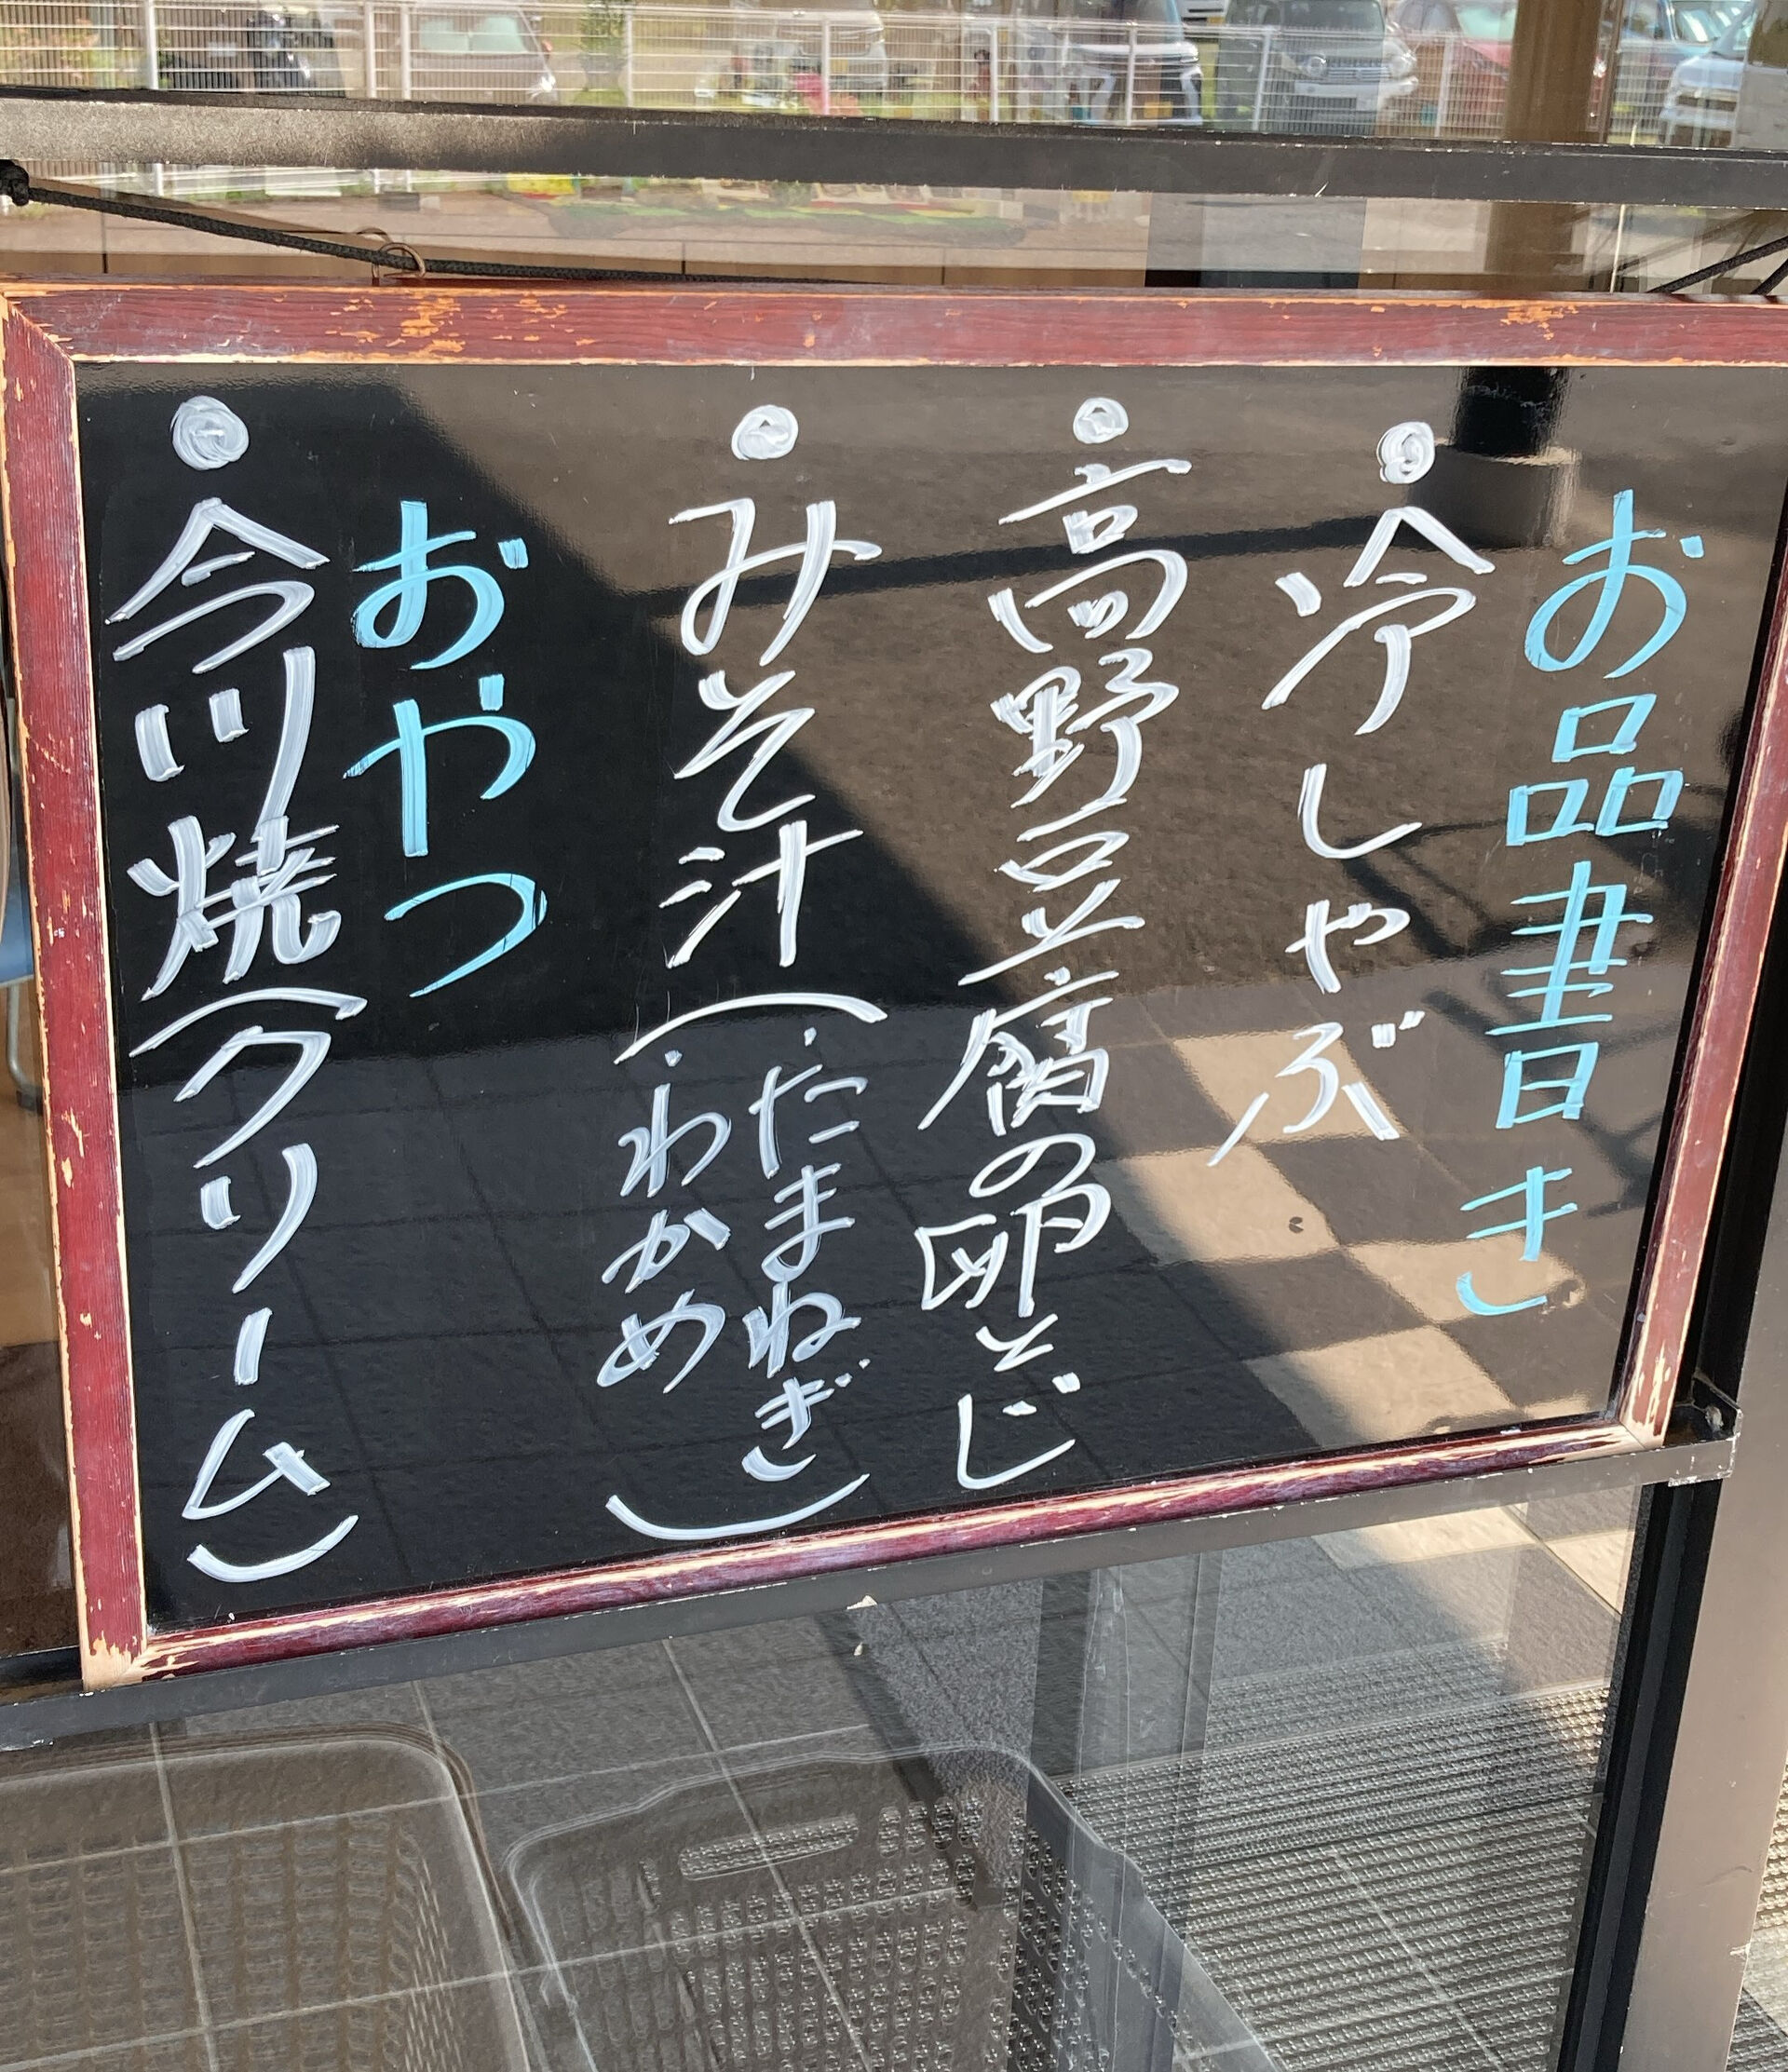 お品書き
●冷しゃぶ
●高野豆腐の卵とじ
●みそ汁(・たまねぎ
・わかめ)
おやつ
●今川焼(クリーム)